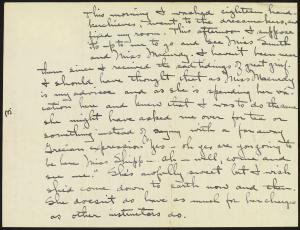 This morning I washed eighteen hand-
kerchiefs, went to the dressmakers, and
fixed my room. This afternoon I suppose
its up to me to go and see Miss Smith
and Miss Macurdy. I haven't been near
them since I received the exchange of greetings.
I should have thought that as Miss Macurdy
is my advisor and as she is spending her va-
cation here and knew that I was to do the same
she might have asked me over for tea or
something instead of saying with a far away
Grecian expression "yes - oh yes are you going to
be here Miss Shipp - ah - well, come and
see me." She's awfully sweet but I wish
she'd come down to earth now and then.
She doesn't do have as much for her charges
as other instructors do.